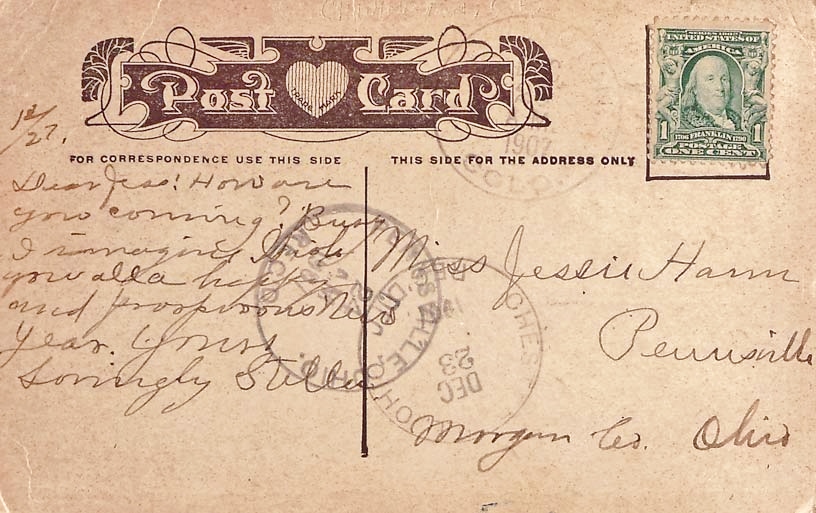 Post Card
TRADE MARK
SERIES 1902
UNITED STATES OF
AMERICA
1 1706 FRANKLIN 1790 1
POSTAGE
ONE CENT
1907
COLO.
FOR CORRESPONDENCE USE THIS SIDE
THIS SIDE FOR THE ADDRESS ONLY
12/27.
Dear Jess! How are
you coming? Busy
I imagine. Wish
you all a happy
and prosperous New
Year. Yours
Lovingly Stella
Miss Jessie Hann
Pennsville
Morgan Co. Ohio
REC'D.
OHIO.
DEC
DEC
23
OHIO